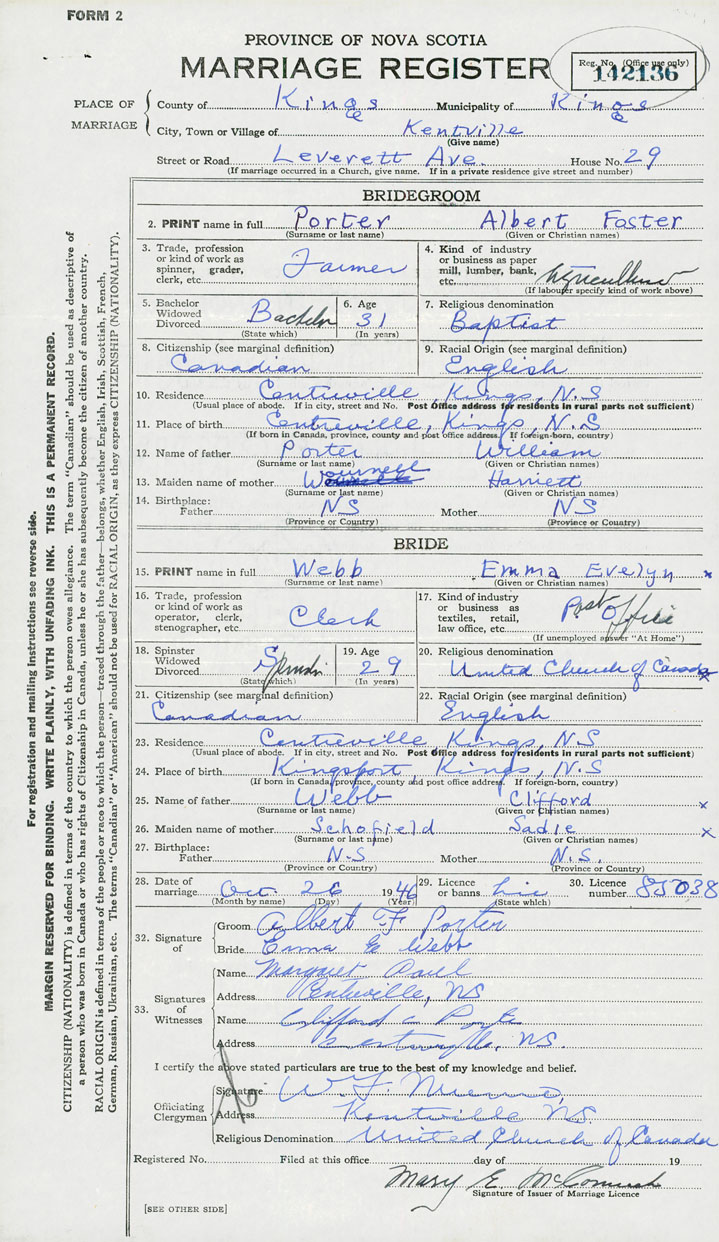 FORM 2
PROVINCE OF NOVA SCOTIA
MARRIAGE REGISTER
Reg. No. (Office use only)
142136
PLACE OF MARRIAGE
County of Kings Municipality of Kings
City, Town or Village of Kentville
(Give name)
Street or Road Leverett Ave. House No. 29
(If marriage occurred in a Church, give name. If in a private residence give street and number)
BRIDEGROOM
2. PRINT name in full Porter Albert Foster
(Surname or last name) (Given or Christian names)
3. Trade, profession or kind of work as spinner, grader, clerk, etc. Farmer
4. Kind of industry or business as paper mill, lumber, bank, etc. Agriculture
(If labourer specify kind of work above)
5. Bachelor Widowed Divorced Bachelor
(State which)
6. Age 31
(In years)
7. Religious denomination
Baptist
8. Citizenship (see marginal definition)
Canadian
9. Racial Origin (see marginal definition)
English
10. Residence Centreville, Kings, N.S
(Usual place of abode. If in city, street and No. Post Office address for residents in rural parts not sufficient)
11. Place of birth Centreville, Kings, N.S
(If born in Canada, province, county and post office address. If foreign-born, country)
12. Name of father Porter William
(Surname or last name) (Given or Christian names)
13. Maiden name of mother Harriett
(Surname or last name) (Given or Christian names)
14. Birthplace:
Father NS Mother NS
(Province or Country) (Province or Country)
BRIDE
15. PRINT name in full Webb Emma Evelyn x
(Surname or last name) (Given or Christian names)
16. Trade, profession or kind of work as operator, clerk, stenographer, etc. Clerk
17. Kind of industry or business as textiles, retail, law office, etc. Post Office
(If unemployed answer "At Home")
18. Spinster Widowed Divorced
(State which)
19. Age 29
(In years)
20. Religious denomination
United Church of Canada x
21. Citizenship (see marginal definition)
Canadian
22. Racial Origin (see marginal definition)
English
23. Residence Centreville, Kings, N.S
(Usual place of abode. If in city, street and No. Post Office address for residents in rural parts not sufficient)
24. Place of birth Kingsport, Kings, N.S
(If born in Canada, province, county and post office address. If foreign-born, country)
25. Name of father Webb Clifford x
(Surname or last name) (Given or Christian names)
26. Maiden name of mother Schofield Sadie x
(Surname or last name) (Given or Christian names)
27. Birthplace:
Father N.S Mother N.S.
(Province or Country) (Province or Country)
28. Date of marriage Oct 26 1946
(Month by name) (Day) (Year)
29. Licence or banns Lic
(State which)
30. Licence number 85038
32. Signature of
Groom Albert F Porter
Bride Emma E Webb
33. Signatures of Witnesses
Name Margaret Paul
Address Centreville, NS
Name Clifford
Address Centreville, N.S.
I certify the above stated particulars are true to the best of my knowledge and belief.
Officiating Clergyman
Signature W.F. Munro,
Address Kentville N.S.
Religious Denomination United Church of Canada
Registered No. Filed at this office day of 19
Mary E. McCormick
Signature of Issuer of Marriage Licence
[SEE OTHER SIDE]
For registration and mailing instructions see reverse side.
MARGIN RESERVED FOR BINDING. WRITE PLAINLY, WITH UNFADING INK. THIS IS A PERMANENT RECORD.
CITIZENSHIP (NATIONALITY) is defined in terms of the country to which the person owes allegiance. The term "Canadian" should be used as descriptive of
a person who was born in Canada or who has rights of Citizenship in Canada, unless he or she has subsequently become the citizen of another country.
RACIAL ORIGIN is defined in terms of the people or race to which the person—traced through the father—belongs, whether English, Irish, Scottish, French,
German, Russian, Ukrainian, etc. The terms "Canadian" or "American" should not be used for RACIAL ORIGIN, as they express CITIZENSHIP (NATIONALITY).